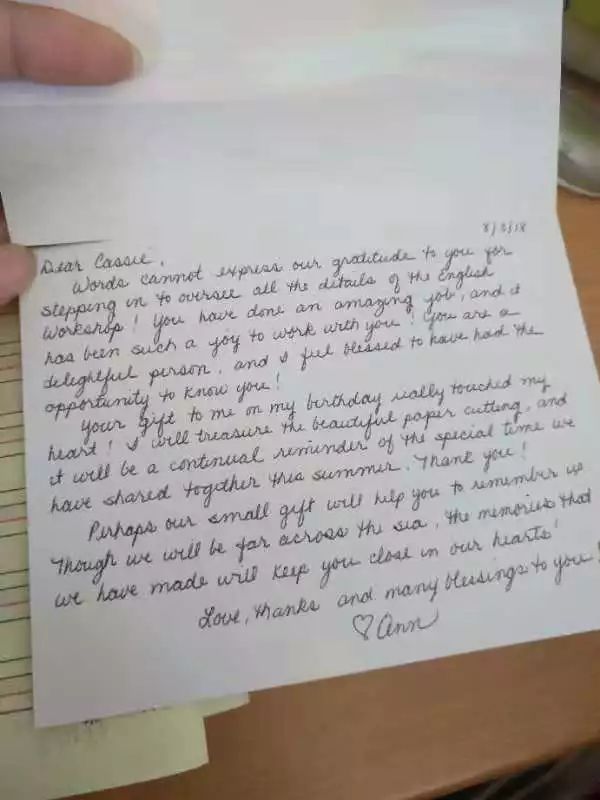 8/3/18
Dear Cassie,
Words cannot express our gratitude to you for
stepping in to oversee all the details of the English
Workshop! You have done an amazing job, and it
has been such a joy to work with you! You are a
delightful person, and I feel blessed to have had the
opportunity to know you!
Your gift to me on my birthday really touched my
heart! I will treasure the beautiful paper cutting, and
it will be a continual reminder of the special time we
have shared together this summer. Thank you!
Perhaps our small gift will help you to remember us
Though we will be far across the sea, the memories that
we have made will keep you close in our hearts!
Love, thanks and many blessings to you!
♡ Ann